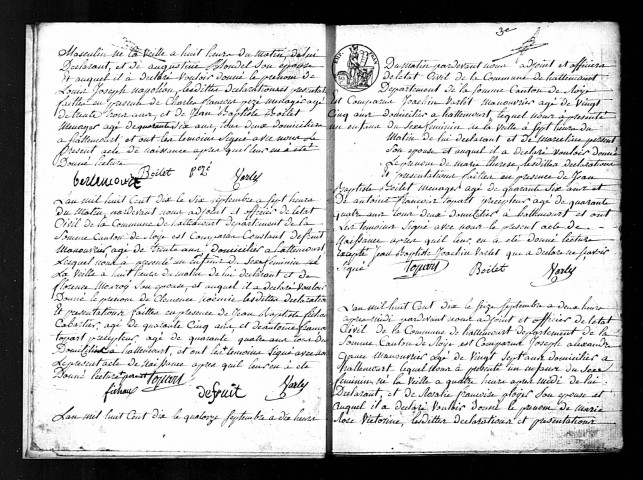 Masculin né la Veille a huit heure du Matin, de lui
Declarant, et de augustine Blondel Son epouse
et auquel il a declaré Vouloir donné le prenom de
Louis Joseph napoleon, lesdittes declarations et presentation
faittes en presence de Charles francois pezé menager agé
de trente trois ans, et de Jean Baptiste Boilet
Menager agé de quarante Six ans, tous deux domiciliés
a hattencourt, et ont les temoins Signé avec nous le
present acte de naissance apres que leur en a été
Donné lecture
Berlancourt Boilet pezé Varlet
L'an mil huit Cent dix le Six Septembre a Sept heure
du Matin, pardevant nous adjoint et officier de l'etat
Civil de la Commune de hattencourt departement de la
Somme Canton de Roye est Comparu Constant defruit
Manouvrier agé de trente ans domicilier a hattencourt
Lequel nous a presenté un Enfant du Sexe feminin né
La Veille a huit heure du matin de lui declarant et de
florence Son epouse, et auquel il a declaré Vouloir
Donné le prenom de Clemence noémie lesdittes declaration
et presentations faittes en presence de Jean Baptiste
Cabartier, agé de quarante Cinq ans, et de antoine francois
topart precepteur, agé de quarante quatre ans tous deux
Domicilies a hattencourt, et ont les temoins Signé avec nous
Le present acte de Naissance apres que leur en a été
Donné lecture
Topart defruit Varlet
L'an mil huit Cent dix le quatorze Septembre a dix heure
3e
Du Matin pardevant nous adjoint et officier
de l'etat Civil de la Commune de hattencourt
Departement de la Somme Canton de Roye
est Comparu Joachin Varlet Manouvrier agé de Vingt
Cinq ans domicilier a hattencourt, lequel nous a presenté
un enfant du Sexe feminin né la Veille a Sept heure du
Matin de lui declarant et de
Son epouse et auquel il a declaré Vouloir donné
Le prenom de marie therese lesdittes declarations
et presentations faittes en presence de Jean
Baptiste Boilet Menager agé de quarante Six ans et
de antoine francois topart precepteur agé de quarante
quatre ans tous deux domicilier a hattencourt et ont
les temoins Signé avec nous le present acte de
Naissance apres que leur en a été donné lecture
excepté Joachin Varlet qui a declaré ne Savoir
Signé Topart Boilet Varlet
L'an mil huit Cent dix le Septembre a deux heure
apres midi pardevant nous adjoint et officier de l'etat
Civil de la Commune de hattencourt departement de la
Somme Canton de Roye est Comparu Joseph alexandre
Manouvrier agé de Vingt Sept ans domicilier a
hattencourt, lequel nous a presenté un enfant du Sexe
feminin, né la Veille a quatre heure apres midi de lui
Declarant, et de Rosalie francoise Son epouse et
auquel il a declaré Vouloir donné le prenom de marie
Rose Victorine, lesdittes declarations et presentations